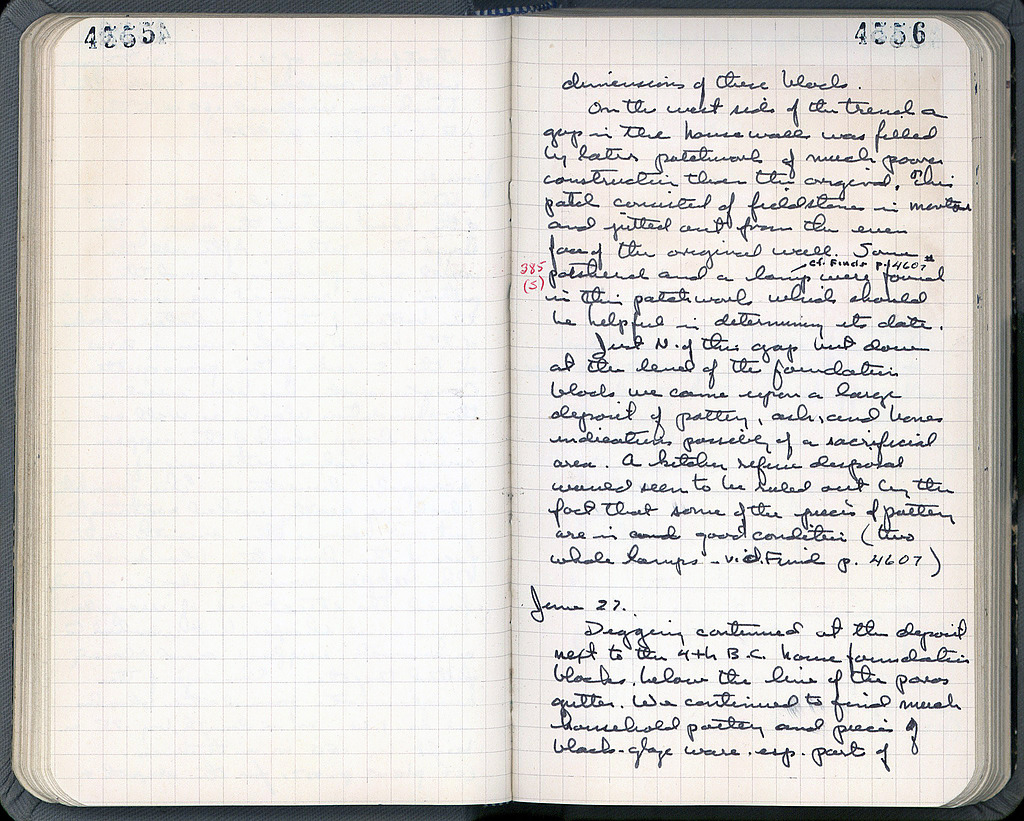 4555
4556
dimensions of these blocks.
On the west side of the trench a
gap in the house wall was filled
by later patchwork of much poorer
construction than the original. This
patch consisted of fieldstones in mortar
and jutted out from the even
face of the original wall. Some
cf. Finds p. 4607
385
potsherds and a lamp were found
(5)
in this patchwork which should
be helpful in determining its date.
Just N. of this gap but down
at the level of the foundation
blocks we came upon a large
deposit of pottery, ash, and bones
indications possibly of a sacrificial
area. A kitchen refuse disposal
would seem to be ruled out by the
fact that some of the pieces of pottery
are in good condition (two
whole lamps - v.d. Finds p. 4607)
June 27.
Digging continued at the deposit
next to the 4th B.C. house foundation
blocks, below the line of the poros
gutter. We continued to find much
household pottery and pieces of
black-glaze ware. esp. part of